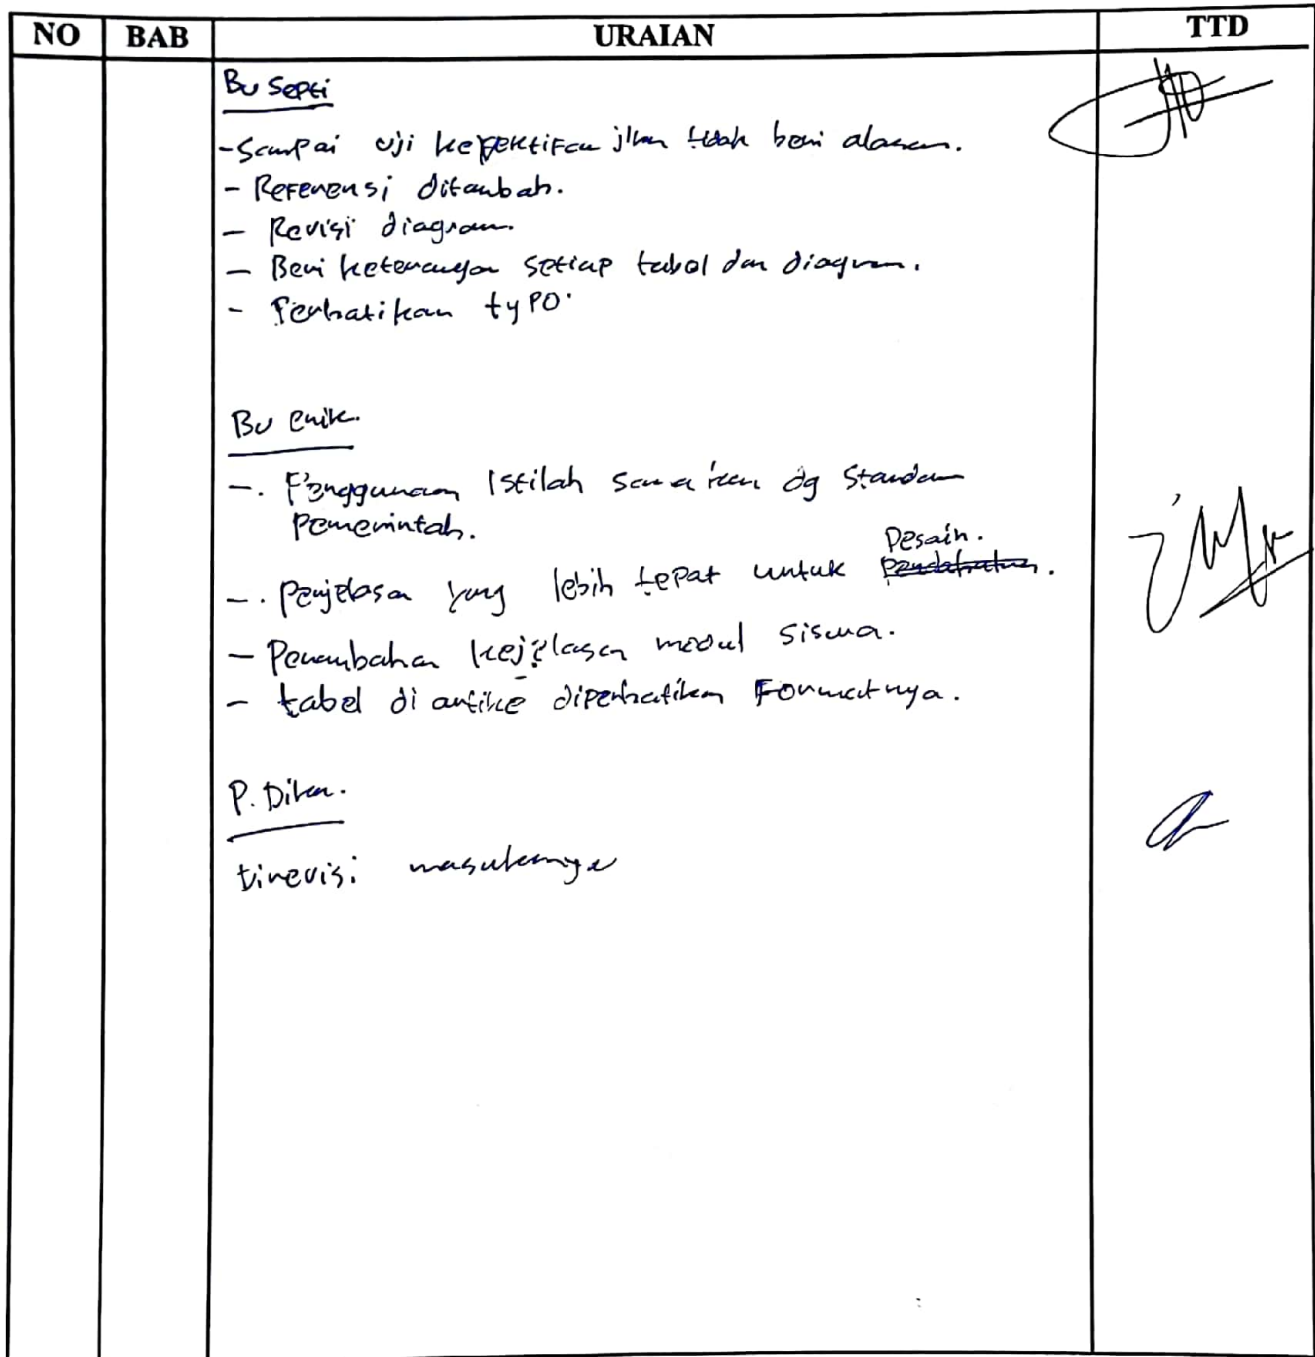 NO BAB URAIAN TTD
Bu Septi
- Sampai uji keefektifan jika tidak beri alasan.
- Referensi ditambah.
- Revisi diagram.
- Beri keterangan setiap tabel dan diagram.
- Perhatikan typo.
Bu Enik.
-. Penggunaan Istilah samakan dg Standar
Pemerintah.
Desain.
-. Penjelasan yang lebih tepat untuk
- Penambahan kejelasan modul siswa.
- tabel di artikel diperhatikan Formatnya.
P. Dika.
direvisi masukannya